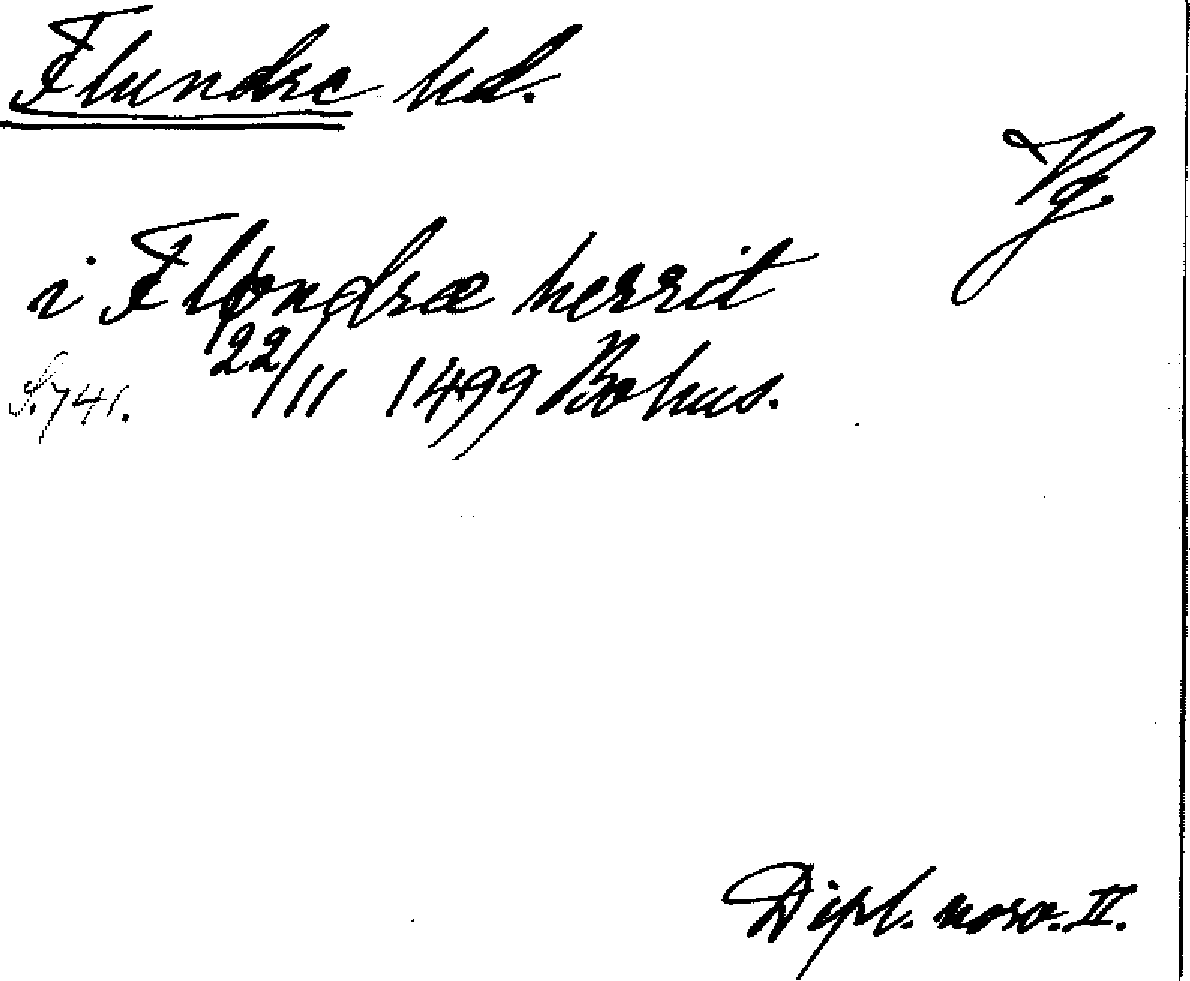 Flundre hd.
Vg.
i Fløndræ herrit
S. 741. 22/11 1499 Bohus.
Dipl. norv. II.